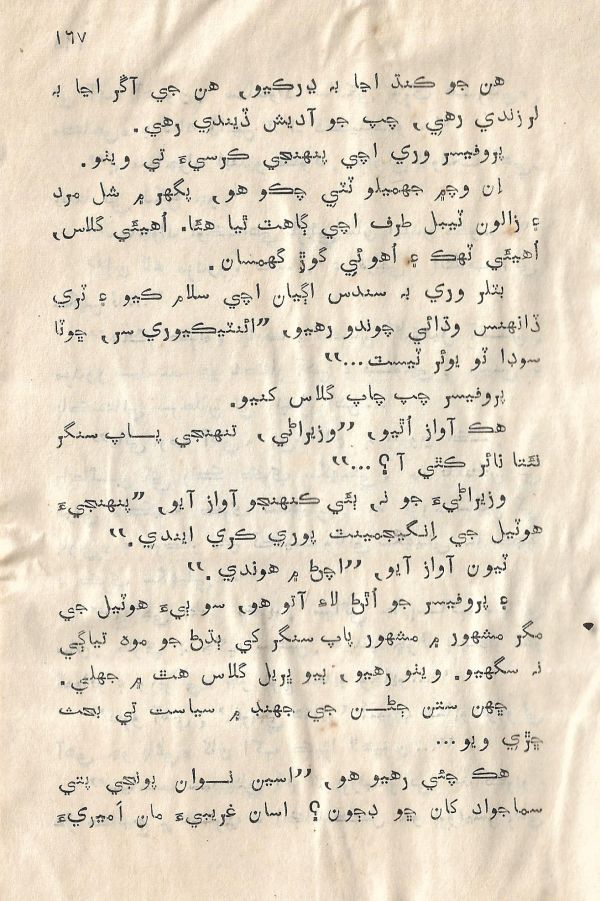 ١٦٧
هن جو ڪنڌ اڃا به ڍرڪيو, هن جي آڱر اڃا به
لرزندي رهي, چپ جو آديش ڏيندي رهي.
پروفيسر وري اچي پنهنجي ڪرسيءَ تي ويٺو.
ان وچ۾ جهميلو ٽٽي چڪو هو, پگهر ۾ شل مرد
۽ زالون ٽيبل طرف اچي ڳاهٽ ٿيا هئا. اُهيئي گلاس,
اُهيئي ٽهڪ ۽ اُهوئي گوڙ گهمسان.
بٽلر وري به سندس اڳيان اچي سلام ڪيو ۽ ٽري
ڏانهنس وڌائي چوندو رهيو, ”ائنٽيڪيوري سر, ڇوٽا
سوڊا ٽو يوئر ٽيسٽ...“
پروفيسر چپ چاپ گلاس کنيو.
هڪ آواز اُٿيو, ”وزيراڻي, تنهنجي پاپ سنگر
نئنا نائر ڪٿي آ؟...“
وزيراڻيءَ جو نه, ٻئي ڪنهنجو آواز آيو, ”پنهنجيءَ
هوٽيل جي اِنگيجمينٽ پوري ڪري ايندي.“
ٽيون آواز آيو, ”اچڻ ۾ هوندي.“
۽ پروفيسر جو اُٿڻ لاءِ آتو هو, سو ٻيءَ هوٽيل جي
مگر مشهور ۾ مشهور پاپ سنگر کي ٻڌڻ جو موهه تياڳي
نه سگهيو. ويٺو رهيو, ٻيو ڀريل گلاس هٿ ۾ جهلي.
ڇهن ستن ڄڻن جي جهنڊ ۾ سياست تي بحث
ڇڙي ويو...
هڪ چئي رهيو هو, ”اسين نوان پونجي پتي
سماجواد کان ڇو ڊڄون؟ اسان غريبيءَ مان اَميريءَ